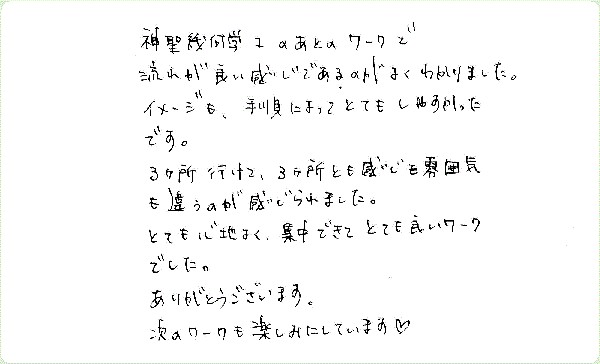 神聖幾何学エのあとのワークで
流れが良い感じであるのがよくわかりました。
イメージも、手順によってとてもしやすかった
です。
3ヶ所行けて、3ヶ所とも感じも雰囲気
も違うのが感じられました。
とても心地よく、集中できてとても良いワーク
でした。
ありがとうございます。
次のワークも楽しみにしています♡